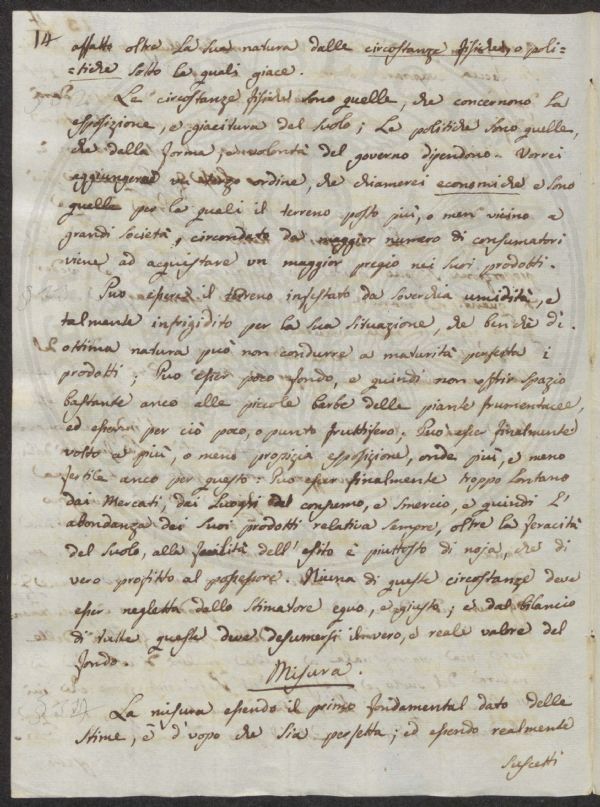 14
affatto oltre la sua natura dalle circostanze fisiche, o poli=
=tiche sotto le quali giace.
Le circostanze fisiche sono quelle, che concernono la
esposizione, e giacitura del suolo; Le politiche sono quelle,
che dalla forma, e volontà del governo dipendono. Vorrei
aggiungere un terzo ordine, che chiamerei economiche e sono
quelle per le quali il terreno posto più, o men vicino a
grandi società, circondato da maggior numero di consumatori
viene ad acquistare un maggior pregio nei suoi prodotti.
Può essere il terreno infestato da soverchia umidità, e
talmente infrigidito per la sua situazione, che benchè di
ottima natura può non condurre a maturità perfetta i
prodotti; Può esser poco fondo, e quindi non offrir spazio
bastante anco alle picole barbe delle piante frumentacee,
ed essere per ciò poco, o punto fruttifero; Può esser finalmente
volto a più, o meno propizia esposizione, onde più, e meno
fertile anco per questo: Può esser finalmente troppo lontano
dai Mercati, dai Luoghi del consumo, e smercio, e quindi l'
abondanza dei suoi prodotti relativa sempre, oltre la feracità
del suolo, alla facilità dell'esito è piuttosto di noja, che di
vero profitto al possessore. Niuna di queste circostanze deve
esser negletta dallo Stimatore equo, e giusto; e dal bilancio
di tutte queste deve desumersi il vero, e reale valore del
fondo.
Misura.
La misura essendo il primo fondamental dato delle
stime, è d'uopo che sia perfetta; ed essendo realmente
suscetti